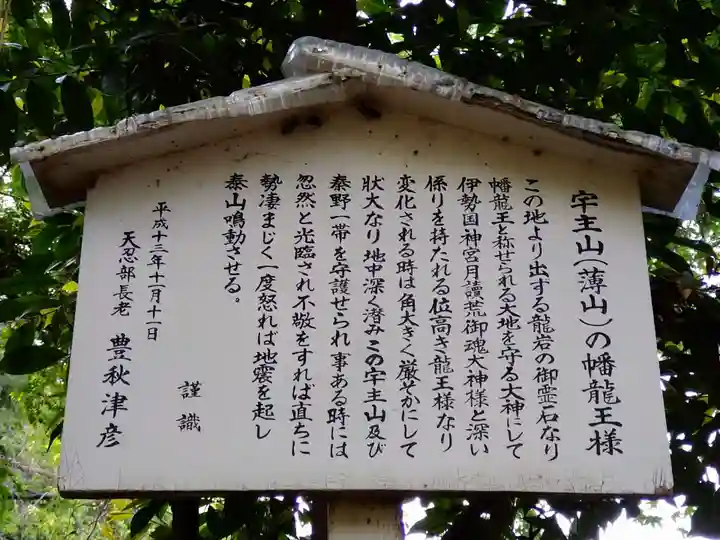 宇主山(薄山)の幡龍王様
この地より出する龍岩の御霊石なり
幡龍王と称せられる大地を守る大神にして
伊勢国神宮月讀荒御魂大神様と深い
係りを持たれる位高き龍王様なり
変化される時は角大きく厳そかにして
状大なり地中深く潜みこの宇主山及び
泰野一帯を守護せられ事ある時には
忽然と光臨され不敬をすれば直ちに
勢凄まじく一度怒れば地震を起し
泰山鳴動させる。
平成十三年十一月十一日
謹識
天忍部長老 豊秋津彦